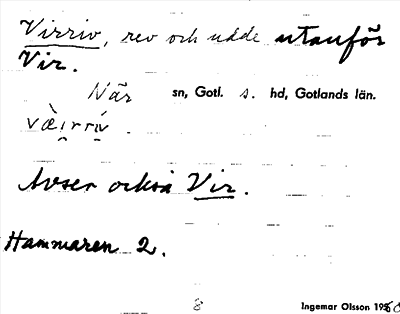 Virriv, rev och udde utanför
Vir.
När sn, Gotl. s. hd, Gotlands län.
vèi̯rrív̯ .
Avser också Vir.
Hammaren 2.
8
Ingemar Olsson 1960